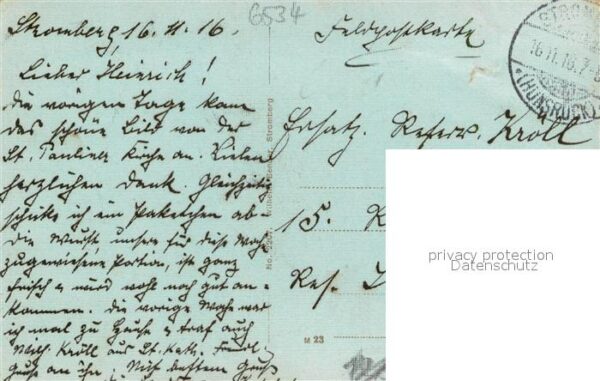 6534
Stromberg, 16.11.16.
Lieber Heinrich!
die vorigen Tage kam
das schöne Bild von der
St. Pauliner Kirche an. Vielen
herzlichen Dank. Gleichzeitig
schicke ich ein Paketchen ab.
Die Wurst unsere für diese Woche
zugewiesene Portion, ist ganz
frisch u. wird wohl noch gut an-
kommen. die vorige Woche war
ich mal zu Hause u. traf auch
Wilh. Kröll aus St. Kath.
Gruß an ihn. Mit bestem Gruß
Feldpostkarte
16.11.16.7-8
(HUNSRÜCK)
Ersatz. Reserv. Kröll
15.
Res.
M 23
privacy protection
Datenschutz